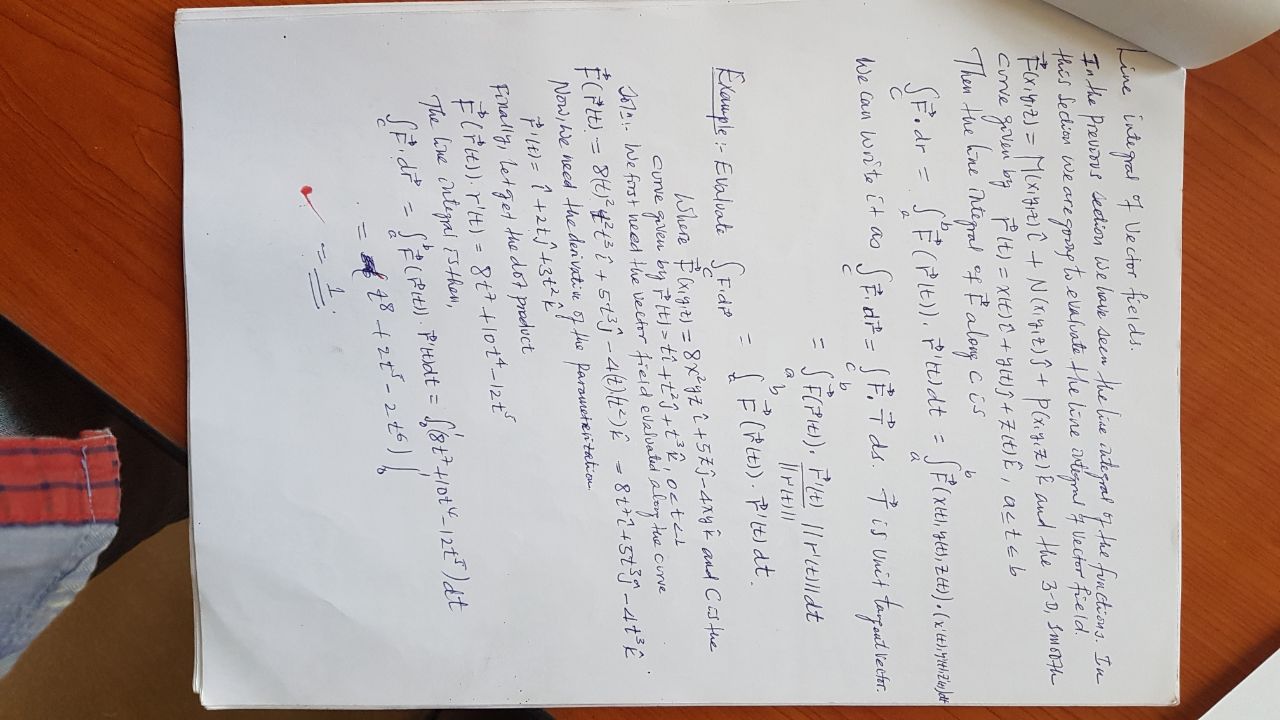 Line integral of Vector fields.
In the previous section we have seen the line integral of the functions. In
this section we are going to evaluate the line integral of vector field.
F⃗(x,y,z) = M(x,y,z)î + N(x,y,z)ĵ + P(x,y,z)k̂ and the 3-D, smooth
curve given by r⃗(t) = x(t)î + y(t)ĵ + z(t)k̂, a ≤ t ≤ b
Then the line integral of F⃗ along C is
∫_C F⃗ · dr = ∫_a^b F⃗(r⃗(t)) · r⃗'(t)dt = ∫_a^b F⃗(x(t), y(t), z(t)) · (x'(t), y'(t), z'(t))dt
We can write it as ∫_C F⃗ · dr⃗ = ∫_C F⃗ · T⃗ ds. T⃗ is unit tangent vector.
= ∫_a^b F⃗(r⃗(t)) · r⃗'(t)/||r'(t)|| ||r'(t)|| dt
= ∫_a^b F⃗(r⃗(t)) · r⃗'(t)dt.
Example:- Evaluate ∫_C F · dr⃗
Where F⃗(x,y,z) = 8x²yz î + 5z ĵ - 4xy k̂ and C is the
curve given by r⃗(t) = tî + t²ĵ + t³k̂, 0 < t < 1
Soln:- We first need the vector field evaluated along the curve
F⃗(r⃗(t)) = 8(t)² t² t³ î + 5t³ ĵ - 4(t)(t²) k̂ = 8t⁷ î + 5t³ ĵ - 4t³ k̂
Now, we need the derivative of the parameterization
r⃗'(t) = î + 2tĵ + 3t²k̂
Finally, let get the dot product
F⃗(r⃗(t)) · r'(t) = 8t⁷ + 10t⁴ - 12t⁵
The line integral is then,
∫_C F⃗ · dr⃗ = ∫_a^b F⃗(r⃗(t)) · r⃗'(t)dt = ∫_0^1 (8t⁷ + 10t⁴ - 12t⁵)dt
= t⁸ + 2t⁵ - 2t⁶)|_0^1
= 1.